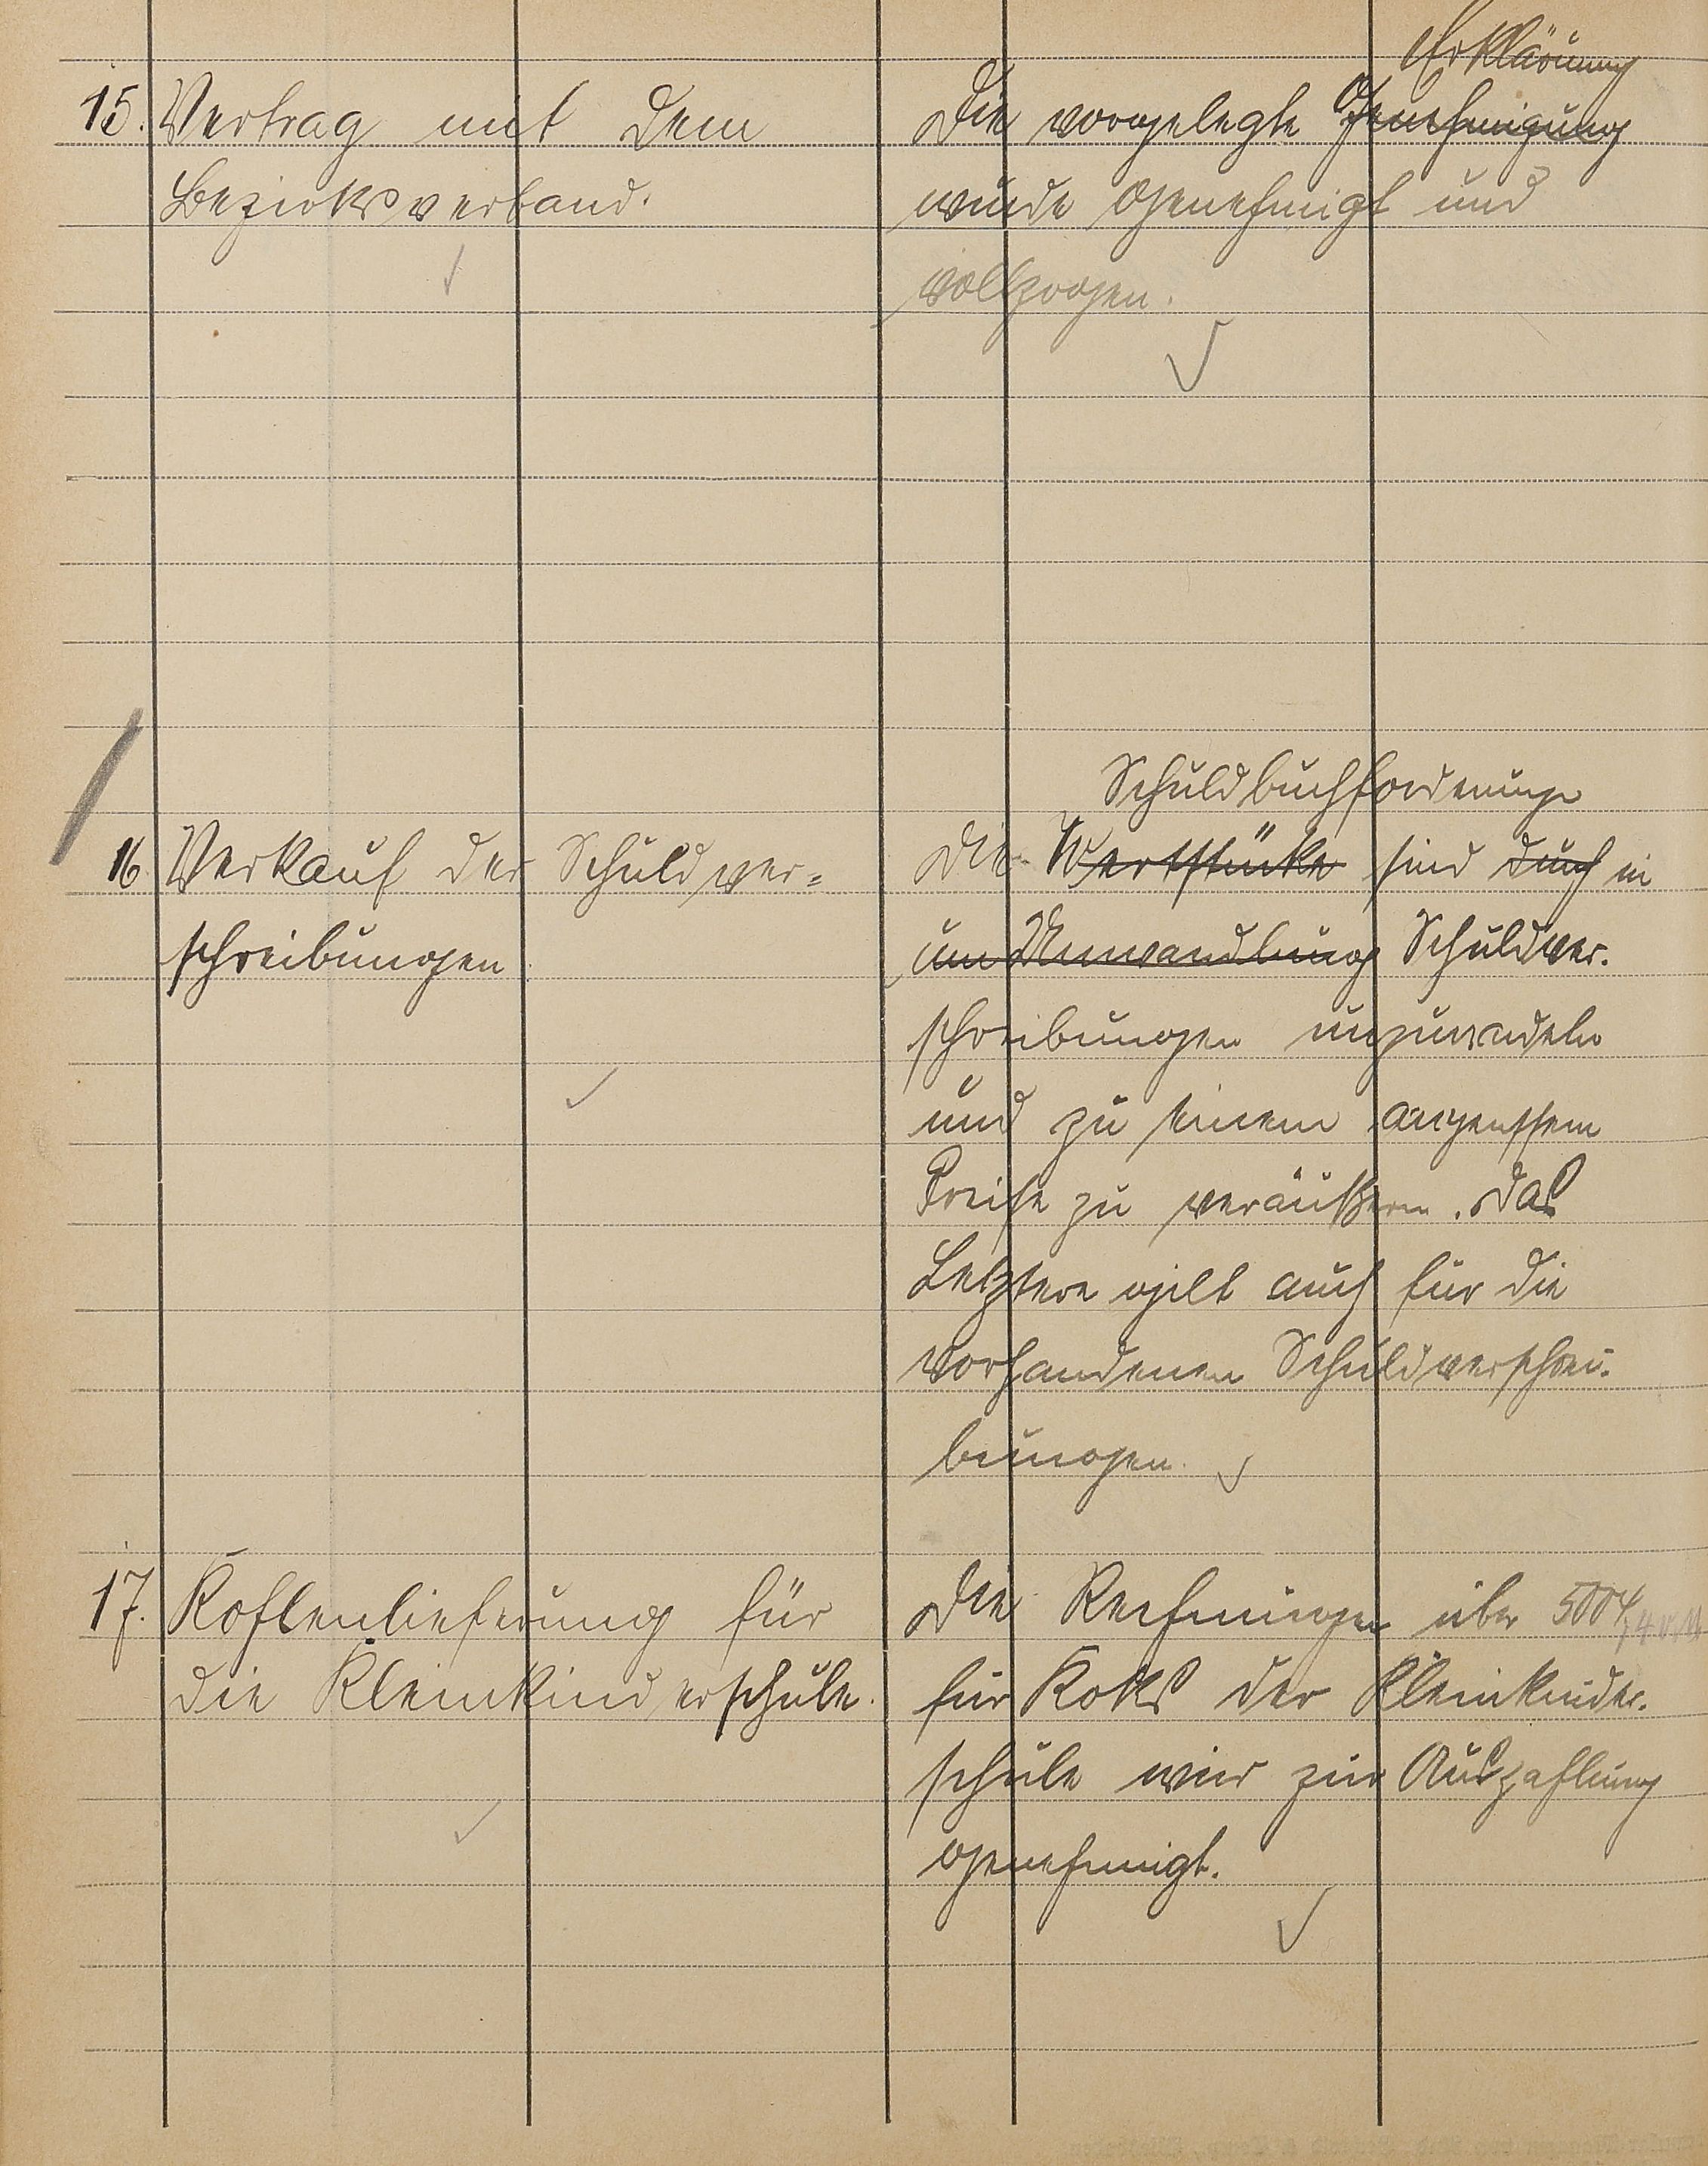 15. Vertrag mit dem
Bezirksverband.
Erklärung
Die vorgelegte Genehmigung
wurde genehmigt und
vollzogen.
16. Verkauf der Schuldver=
schreibungen
Schuldbuchforderunge
Die Wertstücke sind durch in
um Umwandlung Schuldver.
schreibungen umzuwandeln
und zu einem angemessenem
Preise zu veräußern. Das
Letztere gilt auch für die
vorhandenen Schuldverschrei.
bungen.
17. Kohlenlieferung für
die Kleinkinderschule.
Die Rechnungen über 500
für Koks der Kleinkinder.
schule wird zur Auszahlung
genehmigt.